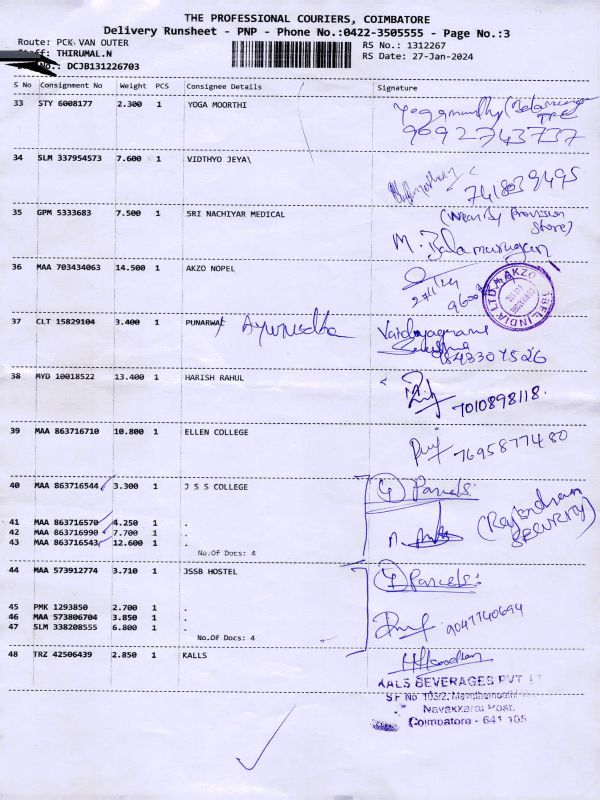 THE PROFESSIONAL COURIERS, COIMBATORE
Delivery Runsheet - PNP - Phone No.:0422-3505555 - Page No.:3
Route: PCK VAN OUTER
RS No.: 1312267
THIRUMAL.N
RS Date: 27-Jan-2024
No.: DCJB131226703
S No Consignment No Weight PCS Consignee Details Signature
33 STY 6008177 2.300 1 YOGA MOORTHI
9092743737
34 SLM 337954573 7.600 1 VIDTHYO JEYA\
7418039495
35 GPM 5333683 7.500 1 SRI NACHIYAR MEDICAL
(Near By Provision
Store)
M. Balamurugan
36 MAA 703434063 14.500 1 AKZO NOPEL
AKZO
INDIA LTD
37 CLT 15829104 3.400 1 PUNARWA Ayurvedha
9843307526
38 MYD 10018522 13.400 1 HARISH RAHUL
7010898118.
39 MAA 863716710 10.800 1 ELLEN COLLEGE
7695877480
40 MAA 863716544 3.300 1 J S S COLLEGE
(4) Parcels:
41 MAA 863716570 4.250 1 .
42 MAA 863716990 7.700 1 .
43 MAA 863716543 12.600 1 .
(Rajendran
SECURITY)
No.Of Docs: 4
44 MAA 573912774 3.710 1 JSSB HOSTEL
(4) Parcels:
45 PMK 1293850 2.700 1 .
46 MAA 573806704 3.850 1 .
47 SLM 338208555 6.800 1 .
9047740694
No.Of Docs: 4
48 TRZ 42506439 2.850 1 KALLS
KALS BEVERAGES PVT
SF No 103/2,
Navakkarai Post.
Coimbatore - 641 105